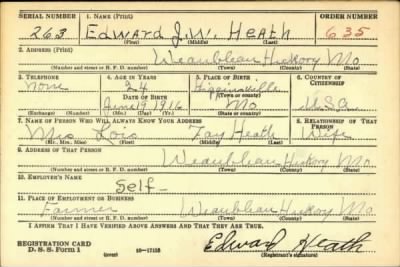 SERIAL NUMBER 1. NAME (Print) ORDER NUMBER
263 Edward J. W. Heath 635
(First) (Middle) (Last)
2. ADDRESS (Print)
Weaublean Hickory Mo
(Number and street or R. F. D. number) (Town) (County) (State)
3. TELEPHONE 4. AGE IN YEARS 5. PLACE OF BIRTH 6. COUNTRY OF CITIZENSHIP
None 24 Higginsville
DATE OF BIRTH (Town or county)
June 19 1916 Mo U.S.A.
(Exchange) (Number) (Mo.) (Day) (Yr.) (State or country)
7. NAME OF PERSON WHO WILL ALWAYS KNOW YOUR ADDRESS 8. RELATIONSHIP OF THAT PERSON
Mrs Lois Fay Heath Wife
(Mr., Mrs., Miss) (First) (Middle) (Last)
9. ADDRESS OF THAT PERSON
Weaublean Hickory Mo
(Number and street or R. F. D. number) (Town) (County) (State)
10. EMPLOYER'S NAME
Self
11. PLACE OF EMPLOYMENT OR BUSINESS
Farmer Weaublean Hickory Mo
(Number and street or R. F. D. number) (Town) (County) (State)
I AFFIRM THAT I HAVE VERIFIED ABOVE ANSWERS AND THAT THEY ARE TRUE.
REGISTRATION CARD
D. S. S. Form 1 (over) 16-17105 Edward Heath
(Registrant's signature)